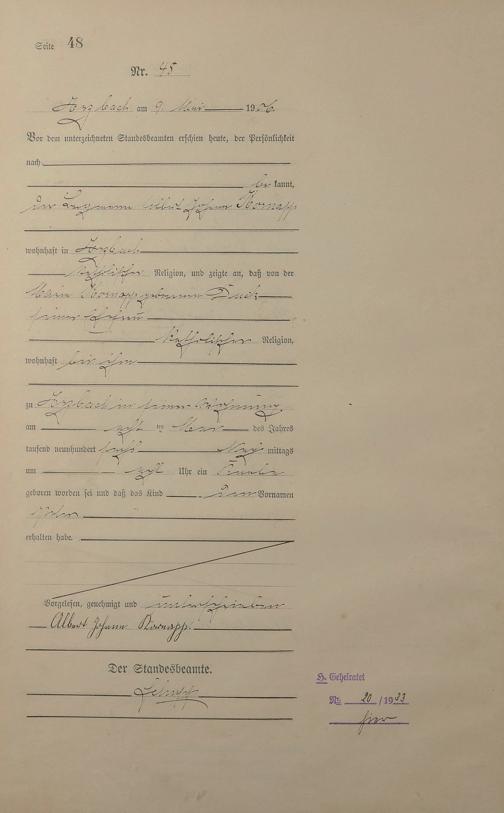 Seite 48
Nr. 45
am 9. Mai 1906.
Vor dem unterzeichneten Standesbeamten erschien heute, der Persönlichkeit
nach
be kannt,
der Albert Johann Kornapp
wohnhaft in
katholischer Religion, und zeigte an, daß von der
Kornapp geborenen
seiner Ehefrau
katholischer Religion,
wohnhaft bei ihm
zu in seiner Wohnung
am acht ten Mai des Jahres
tausend neunhundert sechs Nach mittags
um Uhr ein Knabe
geboren worden sei und daß das Kind den Vornamen
erhalten habe.
Vorgelesen, genehmigt und unterschrieben
Albert Johann Kornapp.
Der Standesbeamte.
H. Geheiratet
Nr. 20 / 1933
hier